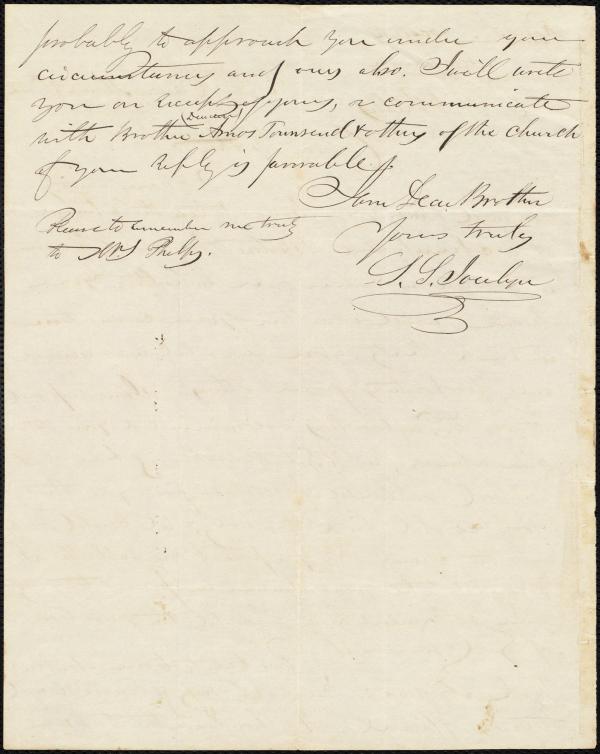 probably to approach you under your
circumstances and ours also. I will write
you on receipt of yours, or communicate
(Deacon)
with Brother Amos Townsend & others of the church
if your reply is favorable.
I am Dear Brother
Yours truly
S. S. Jocelyn
Please to remember me truly
to Mrs Phelps.